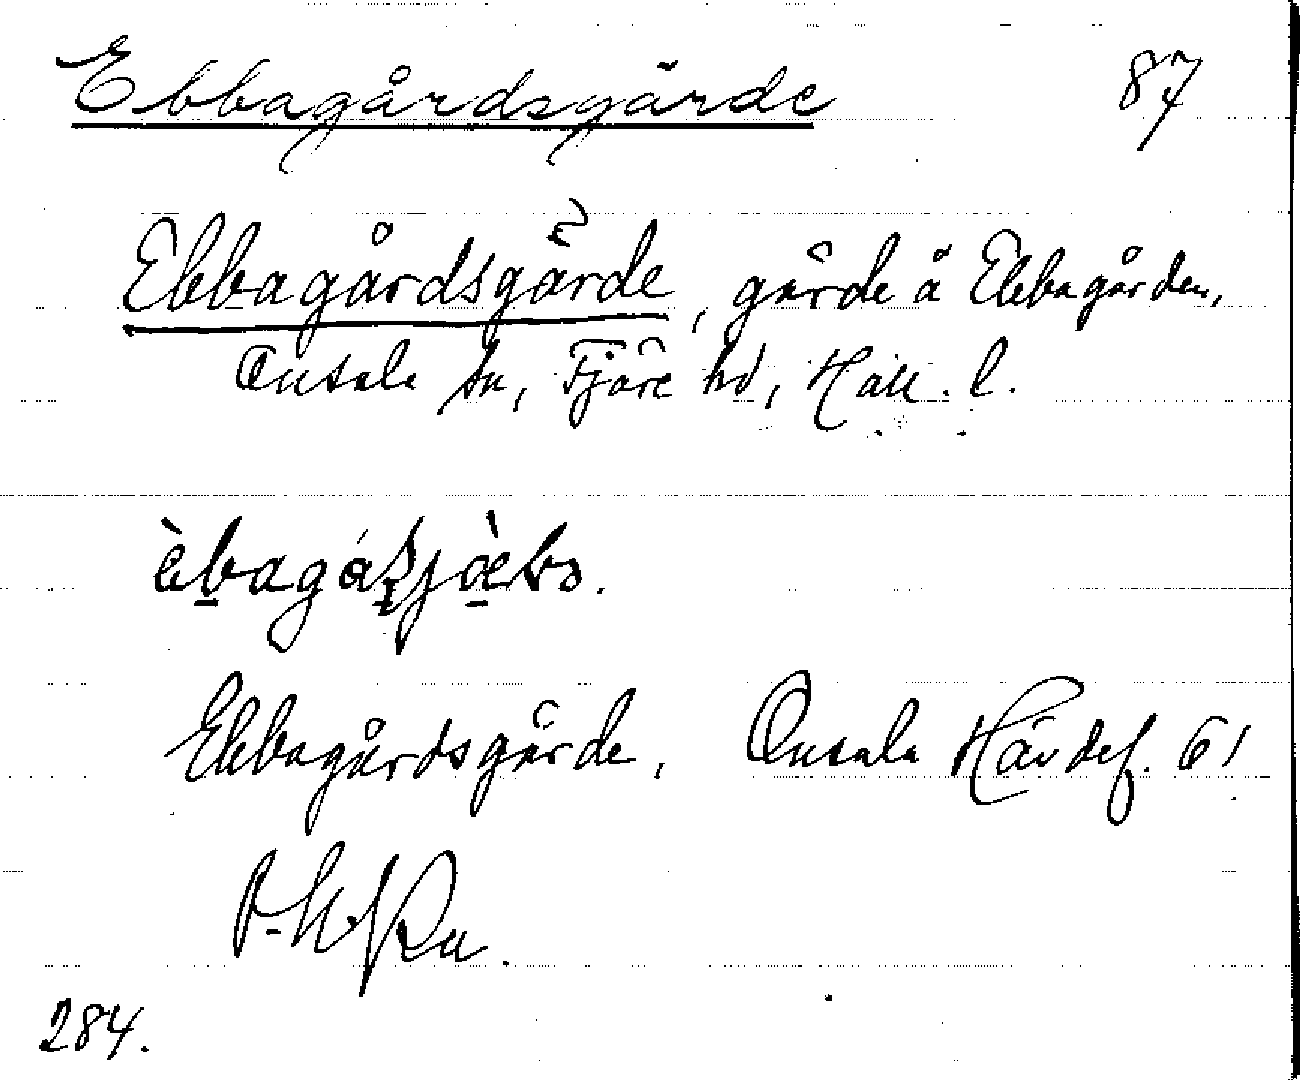 Ebbagårdsgärde 87
Ebbagårdsgärde, gärde å Ebbagården,
Onsala sn, Fjäre hd, Hall. l.
Ebbagårdsgärde, Onsala Hävdef. 61
284.